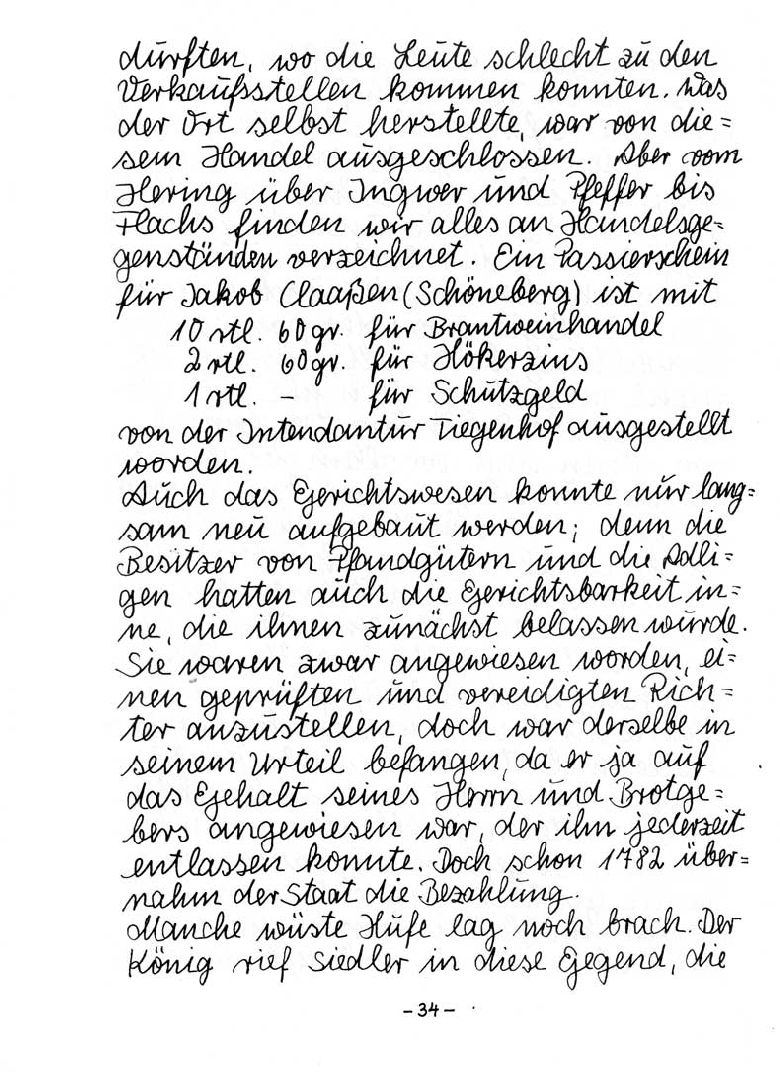 durften, wo die Leute schlecht zu den
Verkaufsstellen kommen konnten. Was
der Ort selbst herstellte, war von die=
sem Handel ausgeschlossen. Aber vom
Hering über Ingwer und Pfeffer bis
Flachs finden wir alles an Handelsge=
genständen verzeichnet. Ein Passierschein
für Jakob Claaßen (Schöneberg) ist mit
10 rtl. 60 gr. für Brantweinhandel
2 rtl. 60 gr. für Hökerzins
1 rtl. - für Schutzgeld
von der Intendantur Tiegenhof ausgestellt
worden.
Auch das Gerichtswesen konnte nur lang=
sam neu aufgebaut werden; denn die
Besitzer von Pfandgütern und die Adli=
gen hatten auch die Gerichtsbarkeit in=
ne, die ihnen zunächst belassen wurde.
Sie waren zwar angewiesen worden, ei=
nen geprüften und vereidigten Rich=
ter anzustellen, doch war derselbe in
seinem Urteil befangen, da er ja auf
das Gehalt seines Herrn und Brotge=
bers angewiesen war, der ihn jederzeit
entlassen konnte. Doch schon 1782 über=
nahm der Staat die Bezahlung.
Manche wüste Hufe lag noch brach. Der
König rief Siedler in diese Gegend, die
-34-